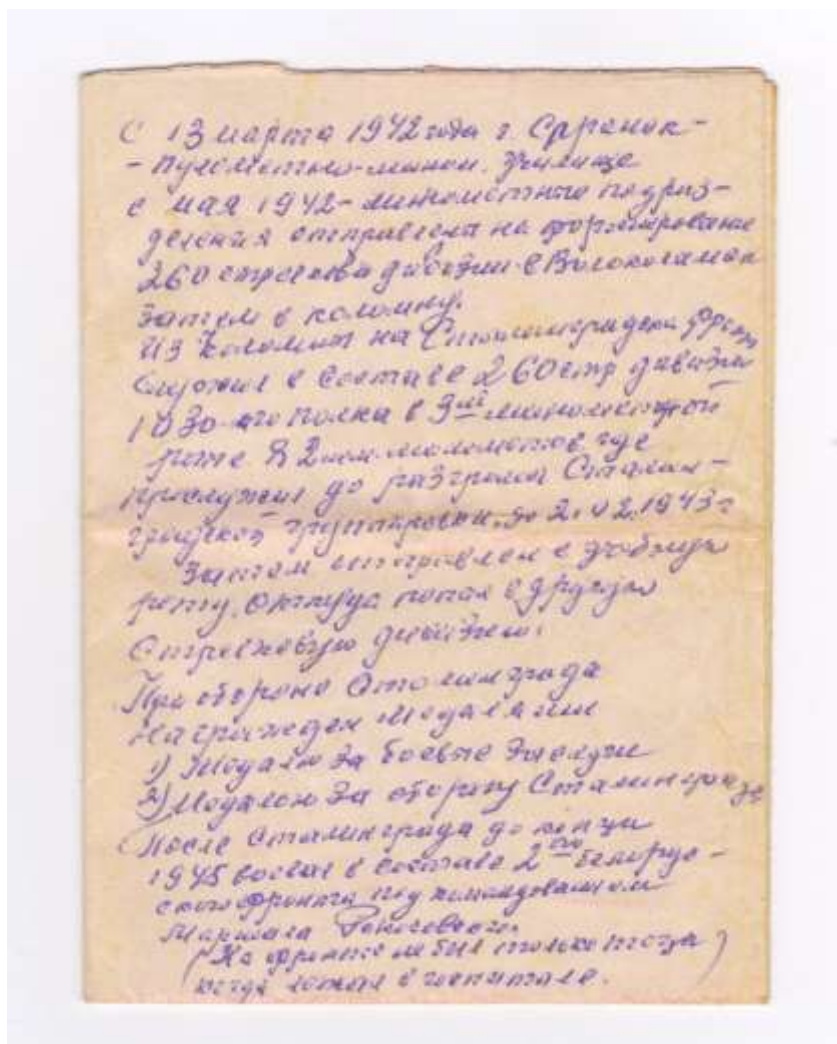 С 13 марта 1942 года г.
- пулеметно-мином. Училище
с мая 1942 - минометные подраз-
деления отправлены на формирование
260 стрелковой дивизии в Волоколамск
Затем в Коломну.
Из Коломны на Сталинградский фронт
Служил в составе 260 стр дивизии
1030-ого полка в 3ей минометной
роте 82 мм минометов где
прослужил до разгрома Сталин-
градской группировки. до 2.02.1943 г
Затем отправлен в учебную
роту, откуда попал в другую
Стрелковую дивизию.
При обороне Сталинграда
награжден медалями
1) Медалью За боевые Заслуги
2) Медалью За оборону Сталинграда
После Сталинграда до конца
1945 воевал в составе 2го Белорус-
ского фронта под командованием
Маршала
(На фронте не был только тогда
когда лежал в госпитале.)